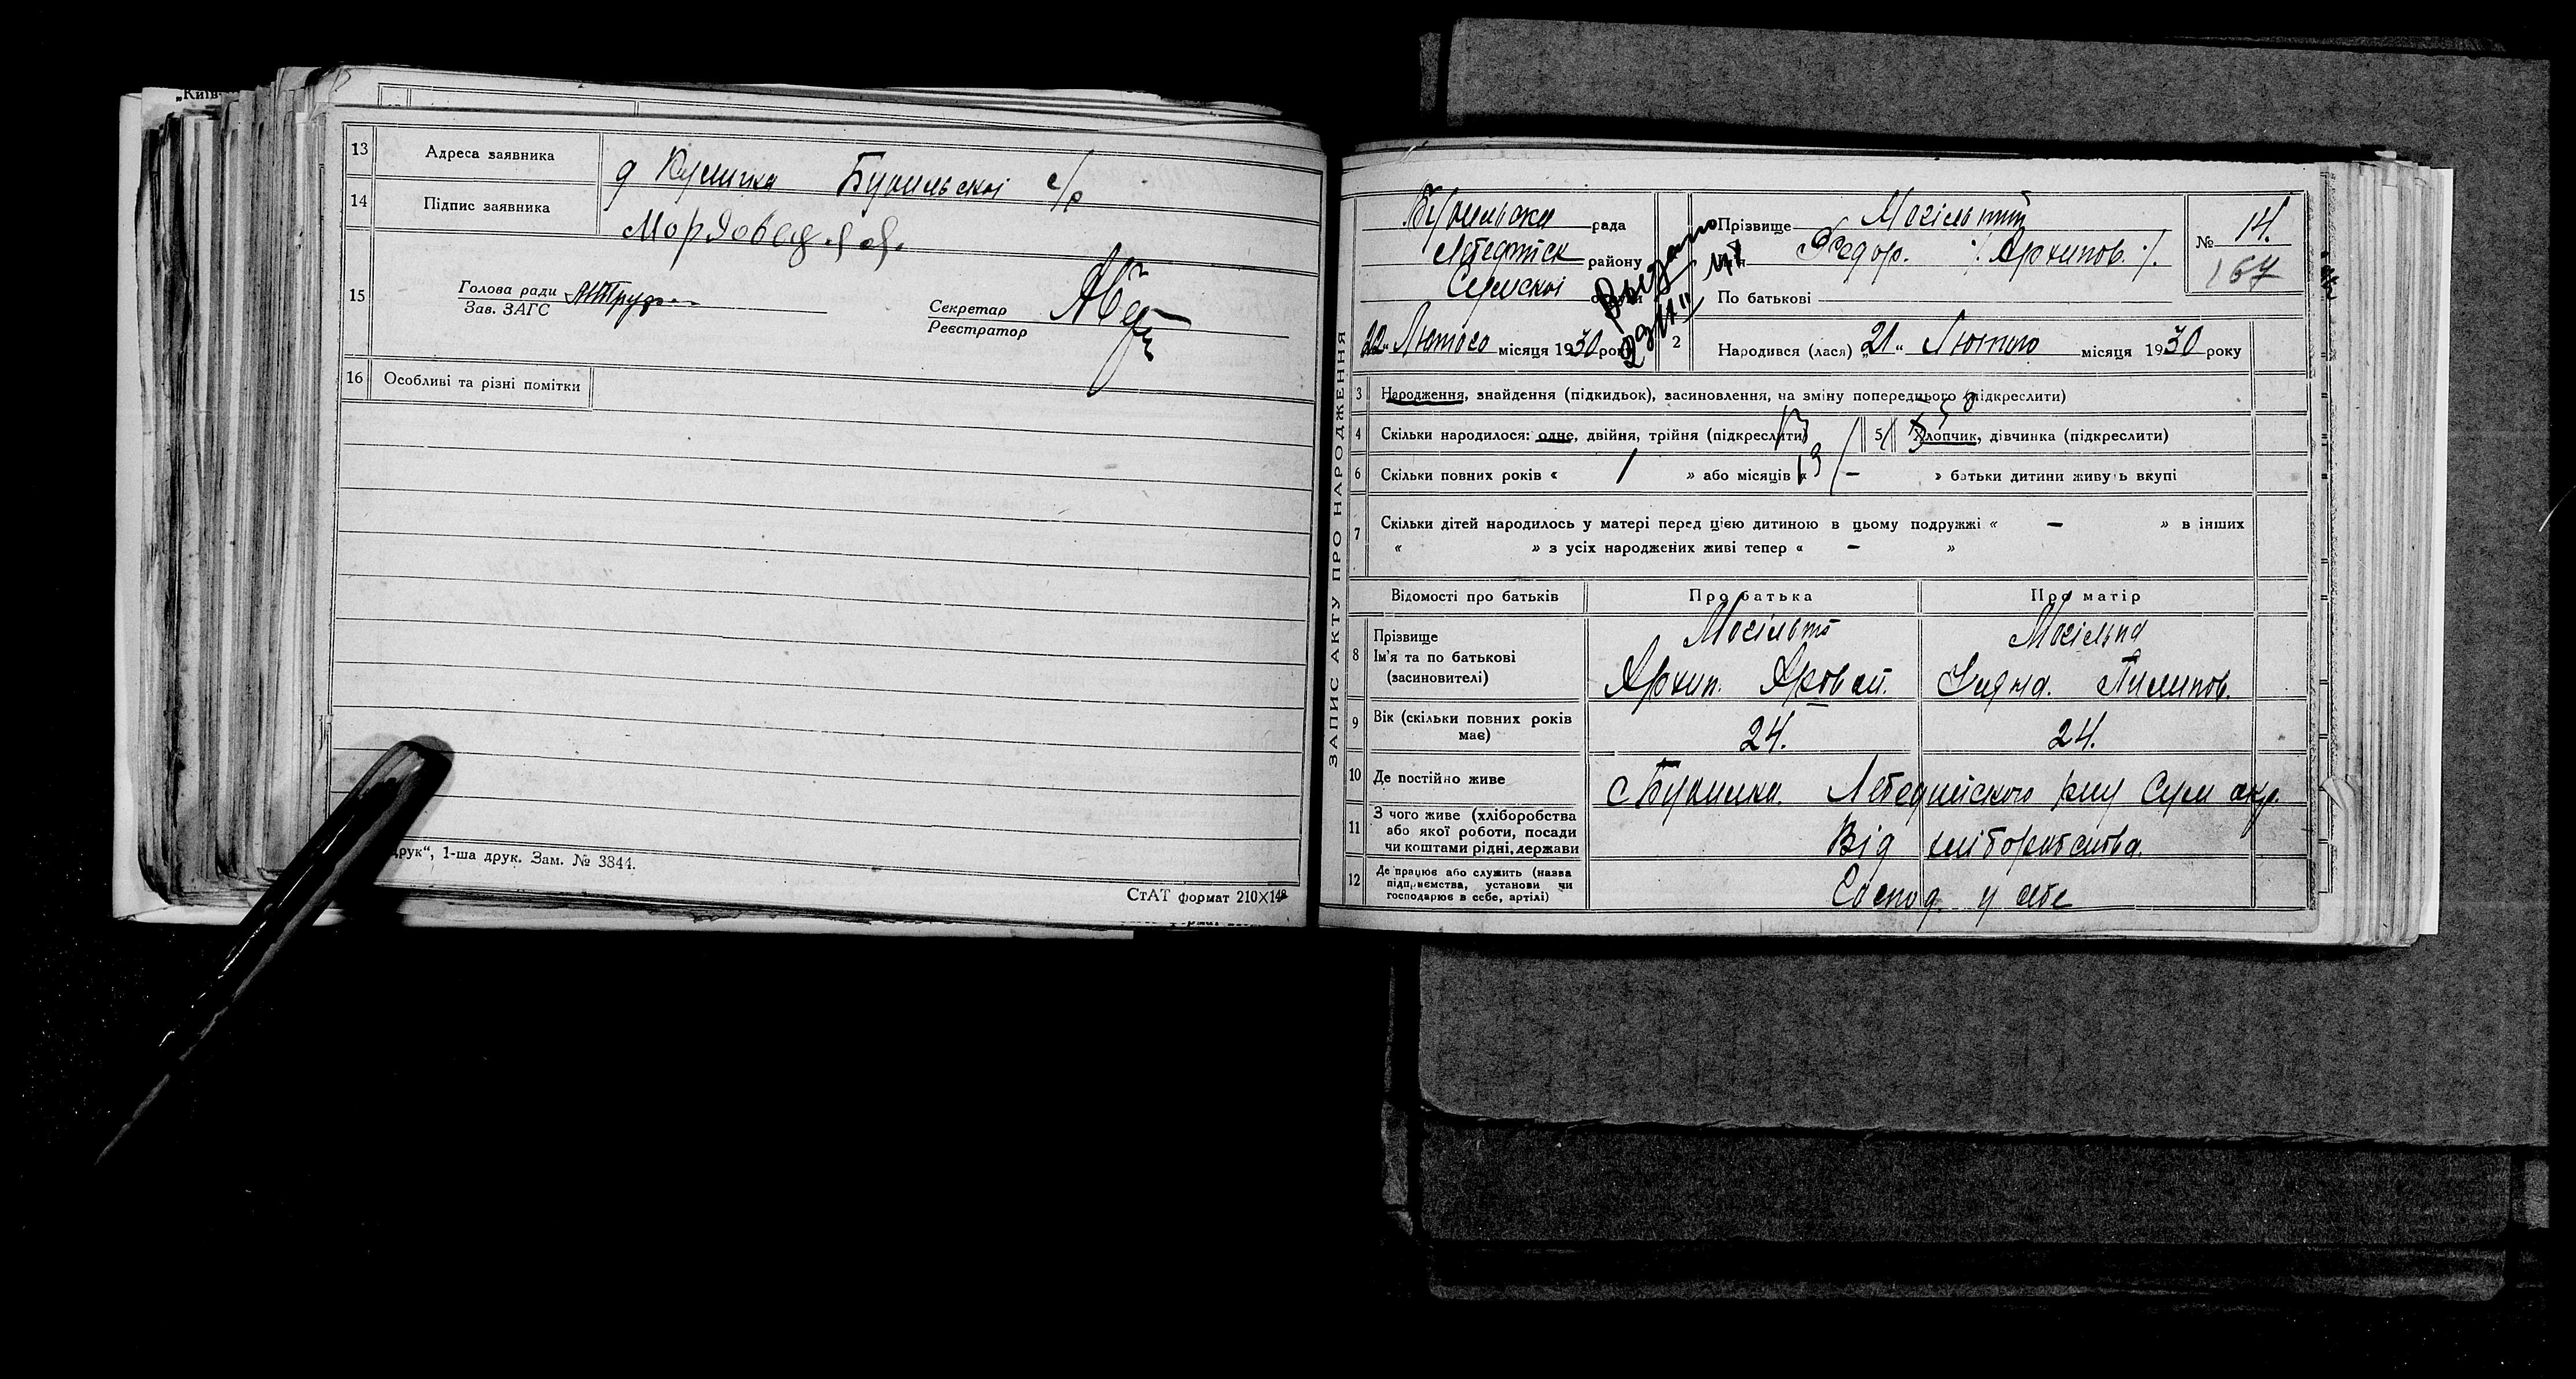 „Київ
13 Адреса заявника
д Кулички Бурильскоі с/р
14 Підпис заявника
Мордовец
15 Голова ради
Зав. ЗАГС
Секретар
Реєстратор
16 Особливі та різні помітки
друк“, 1-ша друк. Зам. № 3844.
СтАТ формат 210×148
ЗАПИС АКТУ ПРО НАРОДЖЕННЯ
рада
району
Сумскоі
22 Лютого місяця 1930 року
2
Прізвище Могільний
Федор. /Архипов./
По батькові
Народився (лася) „21“ Лютого місяця 1930 року
№ 14.
167
3 Народження, знайдення (підкидьок), засиновлення, на зміну попереднього (підкреслити)
4 Скільки народилося: одне, двійня, трійня (підкреслити)
5 Хлопчик, дівчинка (підкреслити)
6 Скільки повних років « 1 » або місяців « — » батьки дитини живуть вкупі
7 Скільки дітей народилось у матері перед цією дитиною в цьому подружжі « — » в інших
« » з усіх народжених живі тепер « — »
Відомості про батьків Про батька Про матір
8 Прізвище
Ім'я та по батькові
(засновителі)
Могільна
Архип. Пилипов.
9 Вік (скільки повних років має)
24. 24.
10 Де постійно живе
с Лебединского р-ну Сум окр.
11 З чого живе (хліборобства
або якої роботи, посади
чи коштами рідні, держави
Від хліборобства.
12 Де працює або служить (назва
підприємства, установи чи
господарює в себе, артілі)
Господ. у себе